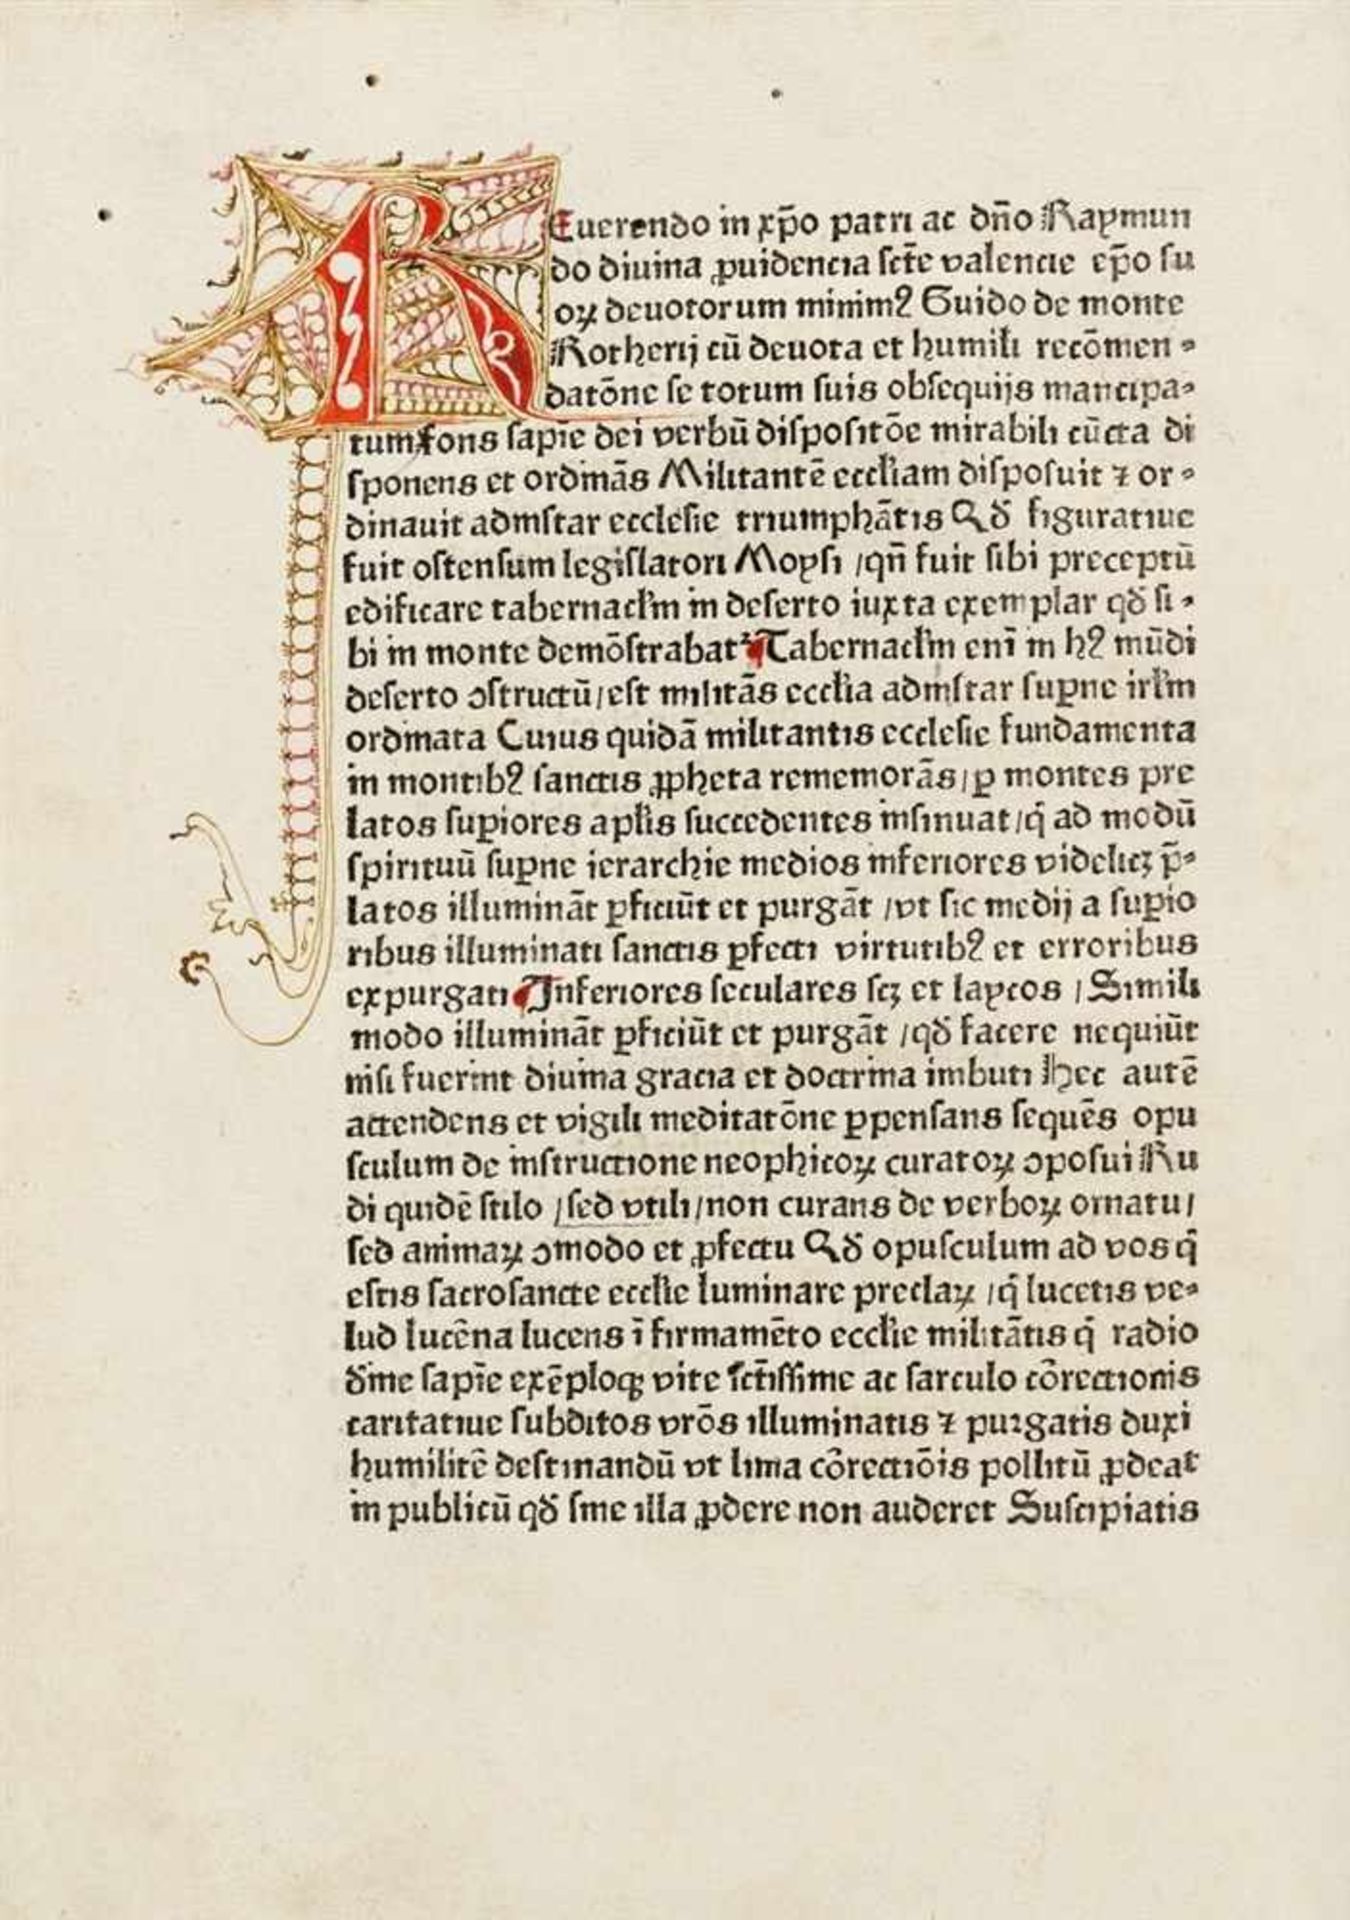 REuerendo in xp̄o patri ac dn̄o Raymun
do diuina ꝓuidencia scte valencie ep̄o su
oꝝ deuotorum minimꝰ Guido de monte
Rotherij cū deuota et humili recōmen-
datōne se totum suis obsequijs mancipa-
tum fons sapīe dei verbū dispositōe mirabili cūcta di
sponens et ordinās Militantē eccliam disposuit ⁊ or-
dinauit adinstar ecclesie triumphātis Qđ figuratiue
fuit ostensum legislatori Moysi /qn̄ fuit sibi preceptū
edificare tabernaclm in deserto iuxta exemplar qđ si-
bi in monte demōstrabat᷑ Tabernaclm enī in hꝰ mūdi
deserto ↄstructū/est militās ecclia adinstar supne irlm
ordinata Cuius quidā militantis ecclesie fundamenta
in montibꝰ sanctis ꝓpheta rememorās/ꝑ montes pre
latos suꝑiores aplis succedentes insinuat/q̄ ad modū
spirituū supne ierarchie medios inferiores videlicꝫ p̄-
latos illumināt ꝑficiūt et purgāt /vt sic medij a suꝑio
ribus illuminati sanctis ꝑfecti virtutibꝰ et erroribus
expurgati Inferiores seculares scꝫ et laycos /Simili
modo illumināt ꝑficiūt et purgāt /qđ facere nequiūt
nisi fuerint diuina gracia et doctrina imbuti Hec autē
attendens et vigili meditatōne ꝑpensans sequēs opu
sculum de instructione neophitoꝝ curatoꝝ ↄposui Ru
di quidē stilo /sed vtili/non curans de verboꝝ ornatu/
sed animaꝝ ↄmodo et ꝓfectu Qđ opusculum ad vos q̄
estis sacrosancte ecclie luminare preclaꝝ /q̄ lucetis ve-
lud lucēna lucens ī firmamēto ecclie militātis q̄ radio
đine sapīe exēploqꝫ vite sctissime ac sarculo cōrectionis
caritatiue subditos vrōs illuminatis ⁊ purgatis duxi
humilitē destinandū vt lima cōrectiōis pollitū ꝓdeat
in publicū qđ sine illa ꝓdere non auderet Suscipiatis